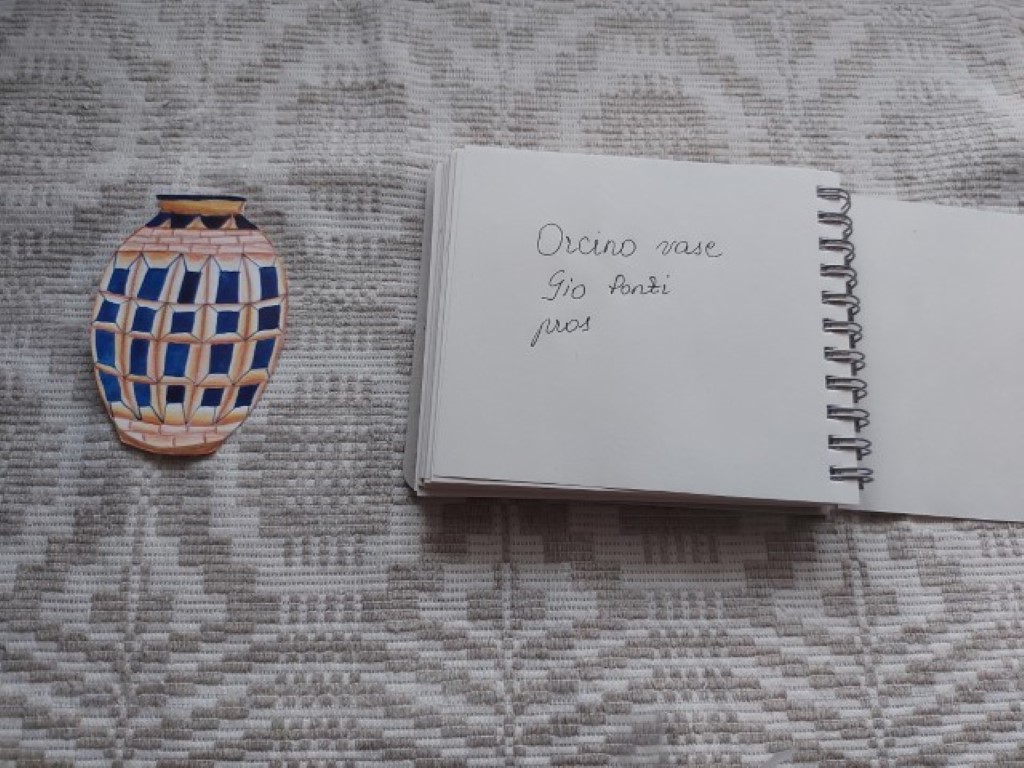 Orcino vase
Gio Ponti
pros